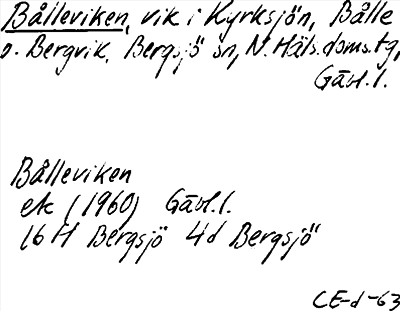 Bålleviken, vik i Kyrksjön, Bålle
o. Bergvik, Bergsjö sn, N. Häls. doms.tg,
Gävl.l.
Bålleviken
ek (1960) Gävl.l.
16 H Bergsjö 4d Bergsjö
CE-d-63